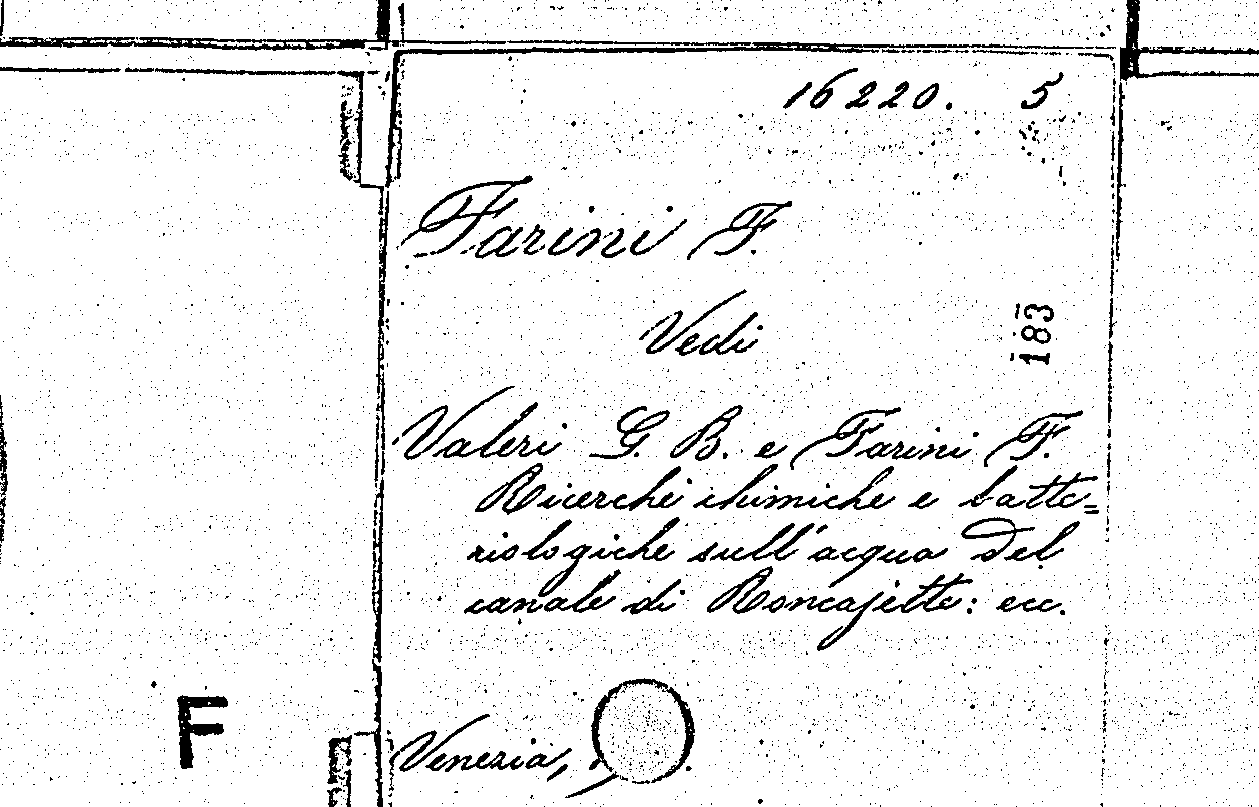 16220. 5
Farini F.
Vedi
183
Valeri G. B. e Farini F.
Ricerche chimiche e batte=
riologiche sull'acqua del
canale di Roncajette: ecc.
F
Venezia,